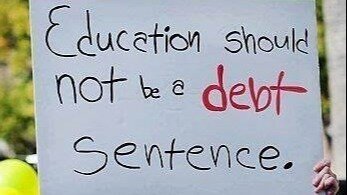 Education should
not be a debt
Sentence.